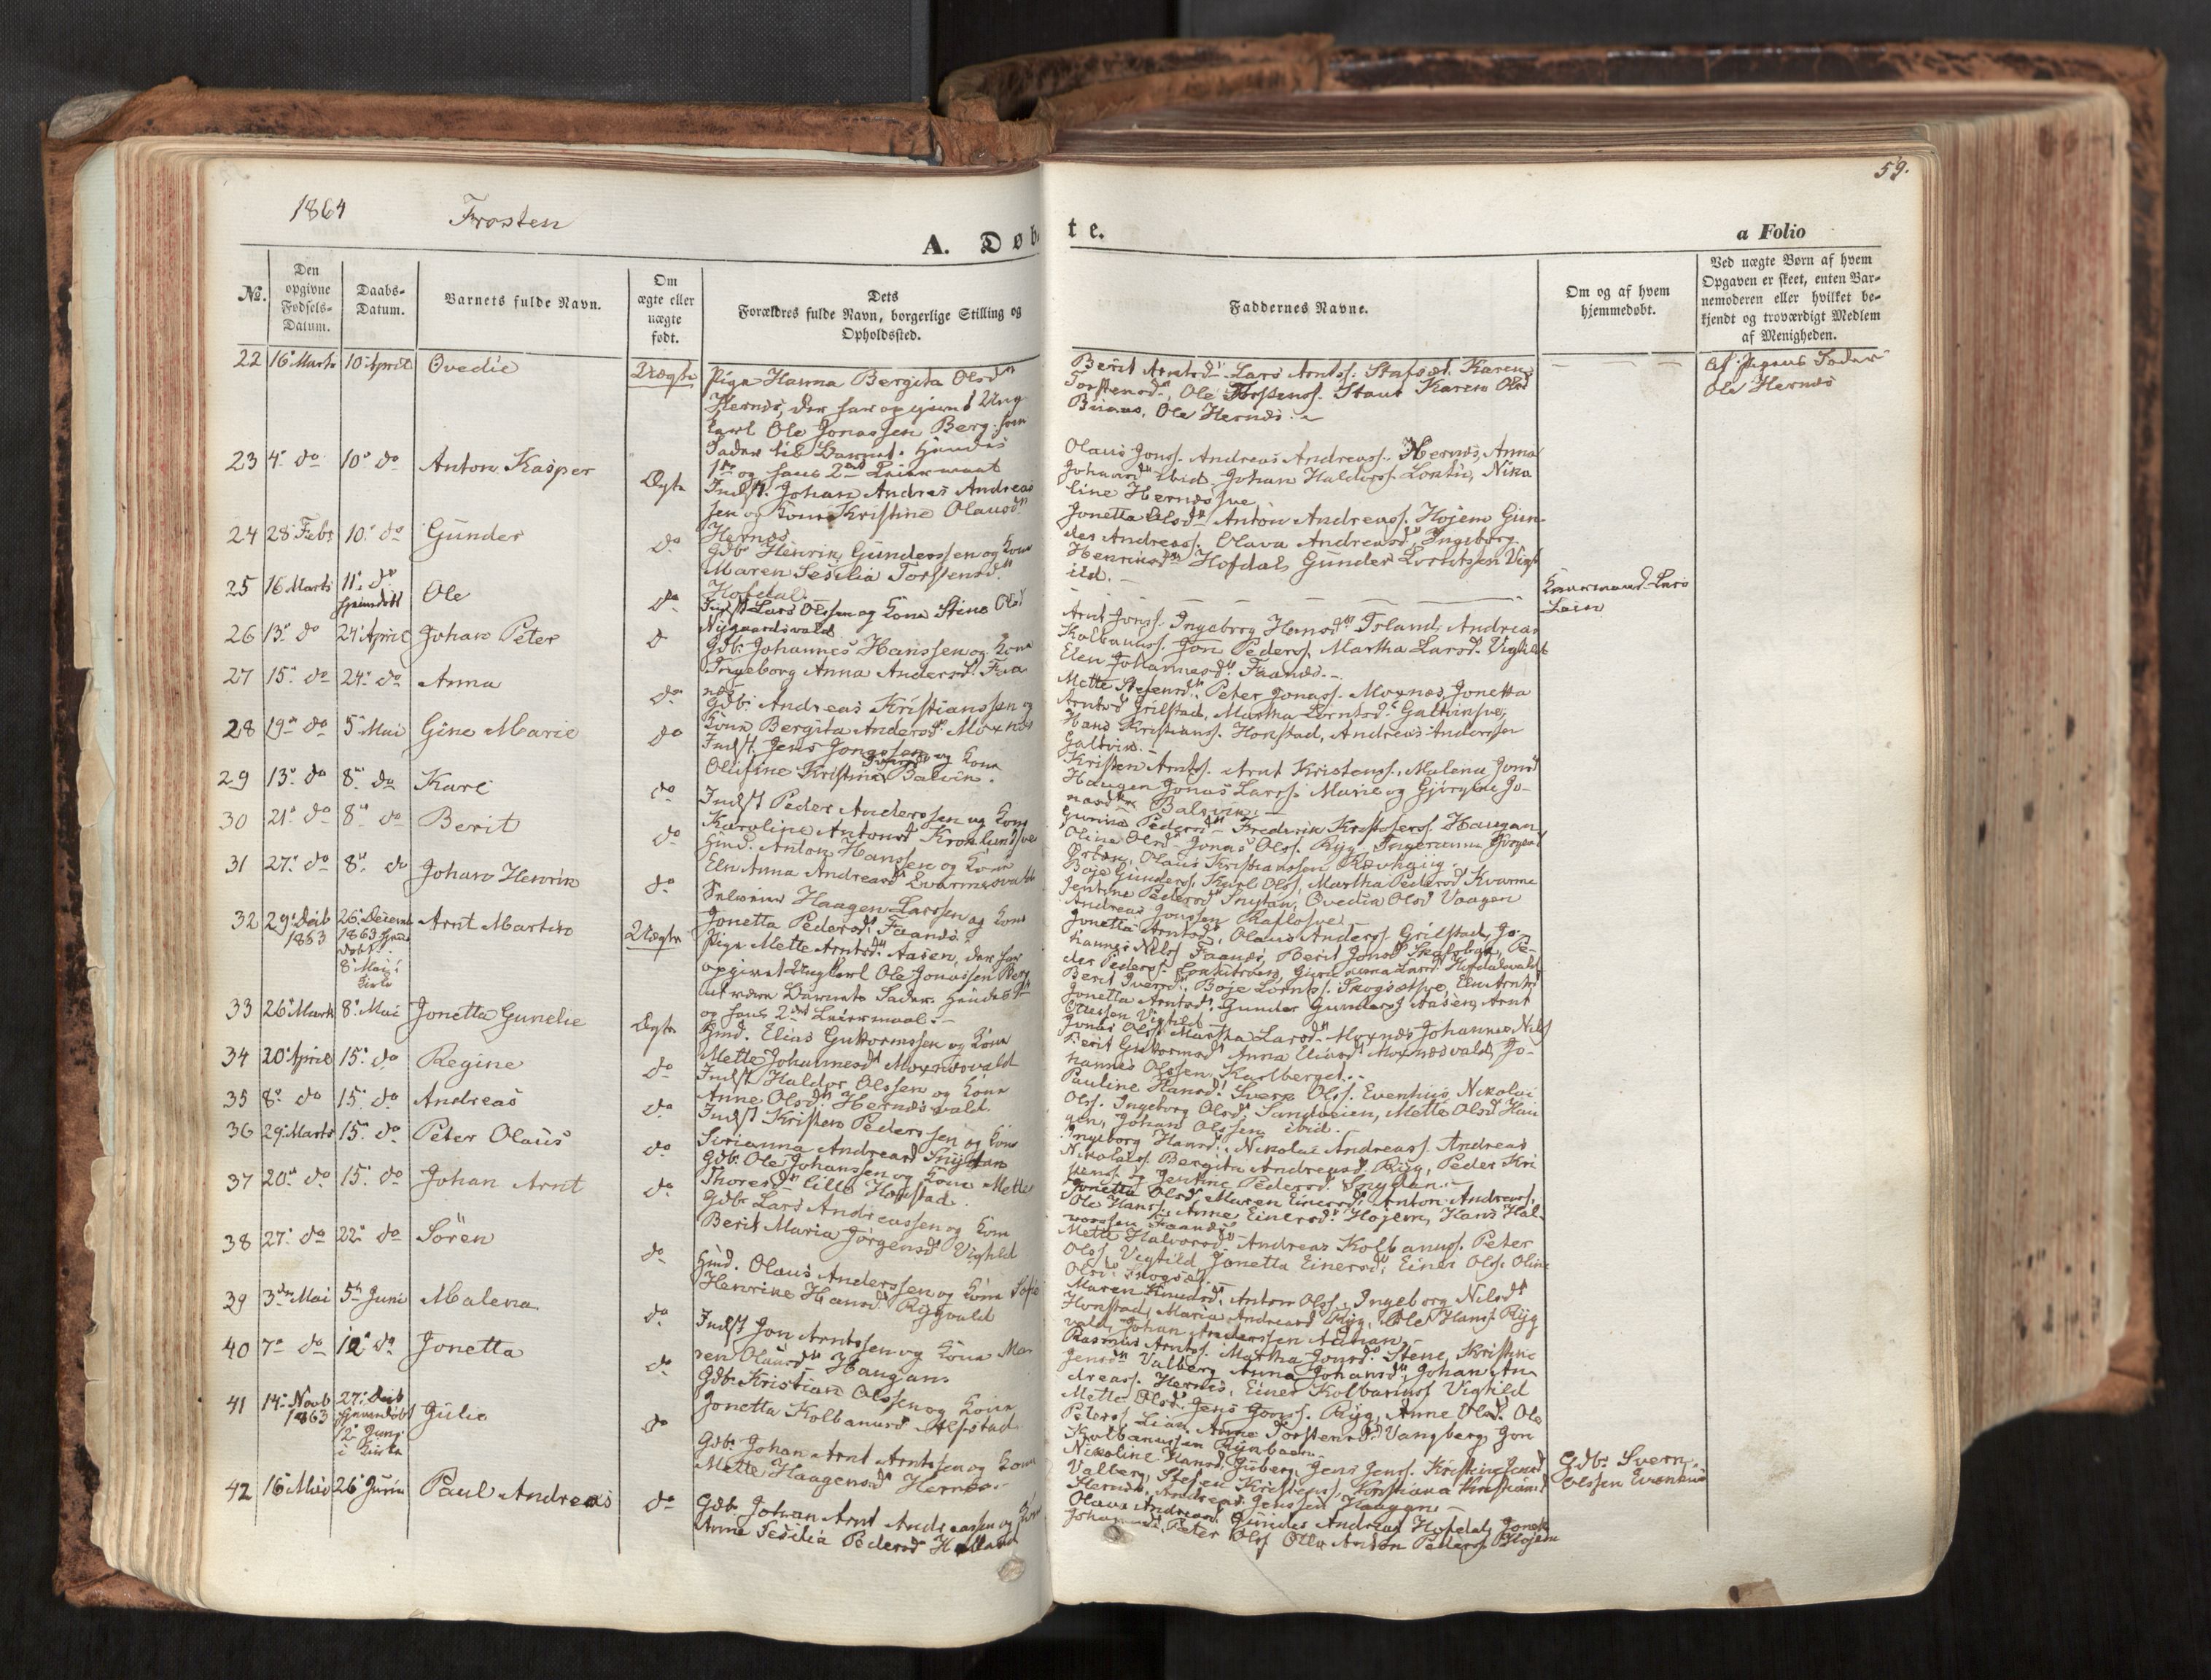 59.
1864
Frosten
A. Døb
t e.
a Folio
No.
Den
opgivne
Fødsels-
Datum.
Daabs-
Datum.
Barnets fulde Navn.
Om
ægte eller
uægte
født.
Dets
Forældres fulde Navn, borgerlige Stilling og
Opholdssted.
Faddernes Navne.
Om og af hvem
hjemmedøbt.
Ved uægte Børn af hvem
Opgaven er skeet, enten Bar-
nemoderen eller hvilket be-
kjendt og troværdigt Medlem
af Menigheden.
22 16 Marts 10 April Ovedie Uægte
Pige Hanna Bergita Olsdn
Hernæs, der har opgivet Ung
karl Ole Jonassen Berg som
Fader til Barnet. Hendes
1ste og hans 2det Leiermaal
Berit Arntsd. Lars Arntss. Stafset. Karen
Torstensd., Ole Torstens. Staut Karen Olsd
Ole Hernæs.
Af Pigens Fader
Ole Hernæs
23 4 do 10 do Anton Kasper Ægte
Indst. Johan Andreas Andreas
sen og Kone Kristine Olausdn
Hernæs
Olaus Jonss. Andreas Andreass. Hernæs, Anna
Johansd ibid. Johan Haldorss. Nika
line Hernæssve
24 28 Febr 10 do Gunder do
Gdb. Henrik Gunderssen og Kone
Maren Sesilia Torstensdn
Hofdal.
Jonetta Olsd Anton Andreass. Hojem Gun-
der Andreass. Olava Andreasd, Ingeborg
Henriksdn Hofdal, Gunder Vigt
ild.
25 16 Marts 11 do
hjemdøbt Ole do
Indst Lars Olssen og Kone Stine Ols
Nygaardsvald
Lars
Lein
26 13 do 24 April Johan Peter d
Gdb. Johannes Hanssen og Kone
Ingeborg Anna Andersd. Faa
næs
Arnt Jonss. Ingeborg Hansd. Andreas
Kolbanuss. Jon Pederss. Martha Larsd. Vigtild
Elen Johannesd. Faanæs.
27 15 do 24 do Anna do
Gdb. Andreas Kristianssen og
Kone Bergita Andersd. Moxnæs
Mette Stefensd., Peter Jonass. Moxnæs, Jonetta
Arntsd Grilstad, Martha Galtvinsve,
Hans Kristianss. Honstad, Andreas Anderssen
Galtvik.
28 19 do 5 Mai Gine Marie do
Indst. Jens Jonassen og Kone
Olufine Kristine Balvin.
Kristen Arntss. Arnt Kristenss. Malena Jonsd
Haugen Jonas Larss. Marie og Jo-
nasd
29 13 do 8 do Karl do
Indst Peder Anderssen og Kone
Karoline Antonsd
Gurina Pedersd Fredrik Haugan
Olina Olsd Jonas Olss. Ryg
Olaus Kristianssen
30 21 do 8 do Berit do
Hmd. Anton Hanssen og Kone
Elen Anna Andreasd
Boje Gunderss, Karl Olss, Martha Pedersd Kvarme
Jentine Pedersd Snytan, Ovedia Olsd Vaagen
31 27 do 8 do Johan Henrik do
Haagen Larssen og Kone
Jonetta Pedersd. Faanæs.
Andreas Jonssen
Jonetta Arntsd, Olaus Anderss. Grilstad, Jo-
hannes Nilss Faanæs, Berit Jonsd
32 29 Deib
1863 26 Decemb
1863 hjem
døbt.
8 Mai i
Kirke Arnt Martin Uægte
Pige Mette Arntsd. Aasen, der har
opgivet Ungkarl Ole Jonassen Berg
at være Barnets Fader. Hendes 1ste
og hans 2det Leiermaal.
Berit Iversd. Boje Elen Arnts
Jonetta Arntsd. Gunder Gunderss Aasen, Arnt
Olaussen Vigtild
33 26 Marts 8 Mai Jonetta Gunelie Ægte
Hmd. Elias Guttormssen og Kone
Mette Johannesd Moxnæsvald
Jonas Olss. Martha Larsd. Moxnæs Johannes Nils
Berit Guttormsd Anna Eliasd Moxnæsvald, Jo-
hannes Olssen Karlberget.
34 20 April 15 do Regine do
Indst Haldor Olssen og Kone
Anne Olsd. Hernæsvald.
Pauline Hansd. Sverk Olss. Evenhus, Nikolai
Olss. Ingeborg Olsd. Sandveien, Mette Olsd. Hau
gen, Johan Olssen ibid.
35 8 do 15 do Andreas do
Indst Kristen Pederssen og Kone
Sirianna Andreasd Snyttan
Ingeborg Hansd., Nikolai Andreass. Andreas
Nikolaiss. Bergita Andreasd. Ryg, Peder Kri
stenss. og Jentine Pedersd. Snytan.
36 29 Marts 15 do Peter Olaus do
Gdb. Ole Johanssen og Kone Mette
Thoresdn lille Honstad.
Jonetta Olsd. Maren Einersd. Anton Andreass.
Ole Hanss. Anne Einersd. Hojem, Hans Hal-
vorssen Faanæs
37 20 do 15 do Johan Arnt do
Gdbr Lars Andreassen og Kone
Berit Maria Jørgensd Vigtild
Mette Halvorsd. Andreas Kolbanuss. Peter
Olss. Vigtild Jonetta Einersd. Einer Olss. Oline
38 27 do 22 do Sören do
Hmd. Olaus Anderssen og Kone Sofie
Henrike Hansd. Rygvald
Maren Anton Olss., Ingeborg Nilsd
Honstad, Maria Andreasd Ryg, Ole Hanss. Ryg
vald, Johan Anderssen
39 3 Mai 5 Juni Malena do
Indst Jon Arntssen og Kone Ma
ren Olausd Haugan
Rasmus Arntss. Martha Jonsd. Stene, Kristine
Jensd Valberg Anna Johansd. Johan An
dreass. Hernæs, Einer Kolbanuss Vigtild
40 7 do 12 do Jonetta do
Gdb. Kristian Olssen og Kone
Jonetta Kolbanusd Alfstad
Mette Olsd. Jens Jonss. Ryg, Anne Olsd. Ole
Peterss. Lian Anne Torstensd. Vangberg, Jon
Kolbanussen
41 14 Novb
1863 27 Deib
hjemdøbt
12 Juni
i Kirke Julie do
Gdb. Johan Arnt Arntssen og Kone
Mette Haagensd Hernæs.
Nikoline Hansd Juberg, Jens Jenss. Kristine Jensd
Valberg, Stefen Kristenss, Kristiana Kristiansd
Hernæs, Andreas Jenssen Haugan.
Gdb. Svern
Olssen Evenhus
42 16 Mai 26 Juni Paul Andreas do
Gdb. Johan Arnt Andreassen og Kone
Anne Sesilia Pedersd
Olava Andreasd Gunder Andreas Hofdal, Jonet
Peter Olss Anton Pederss Hojem